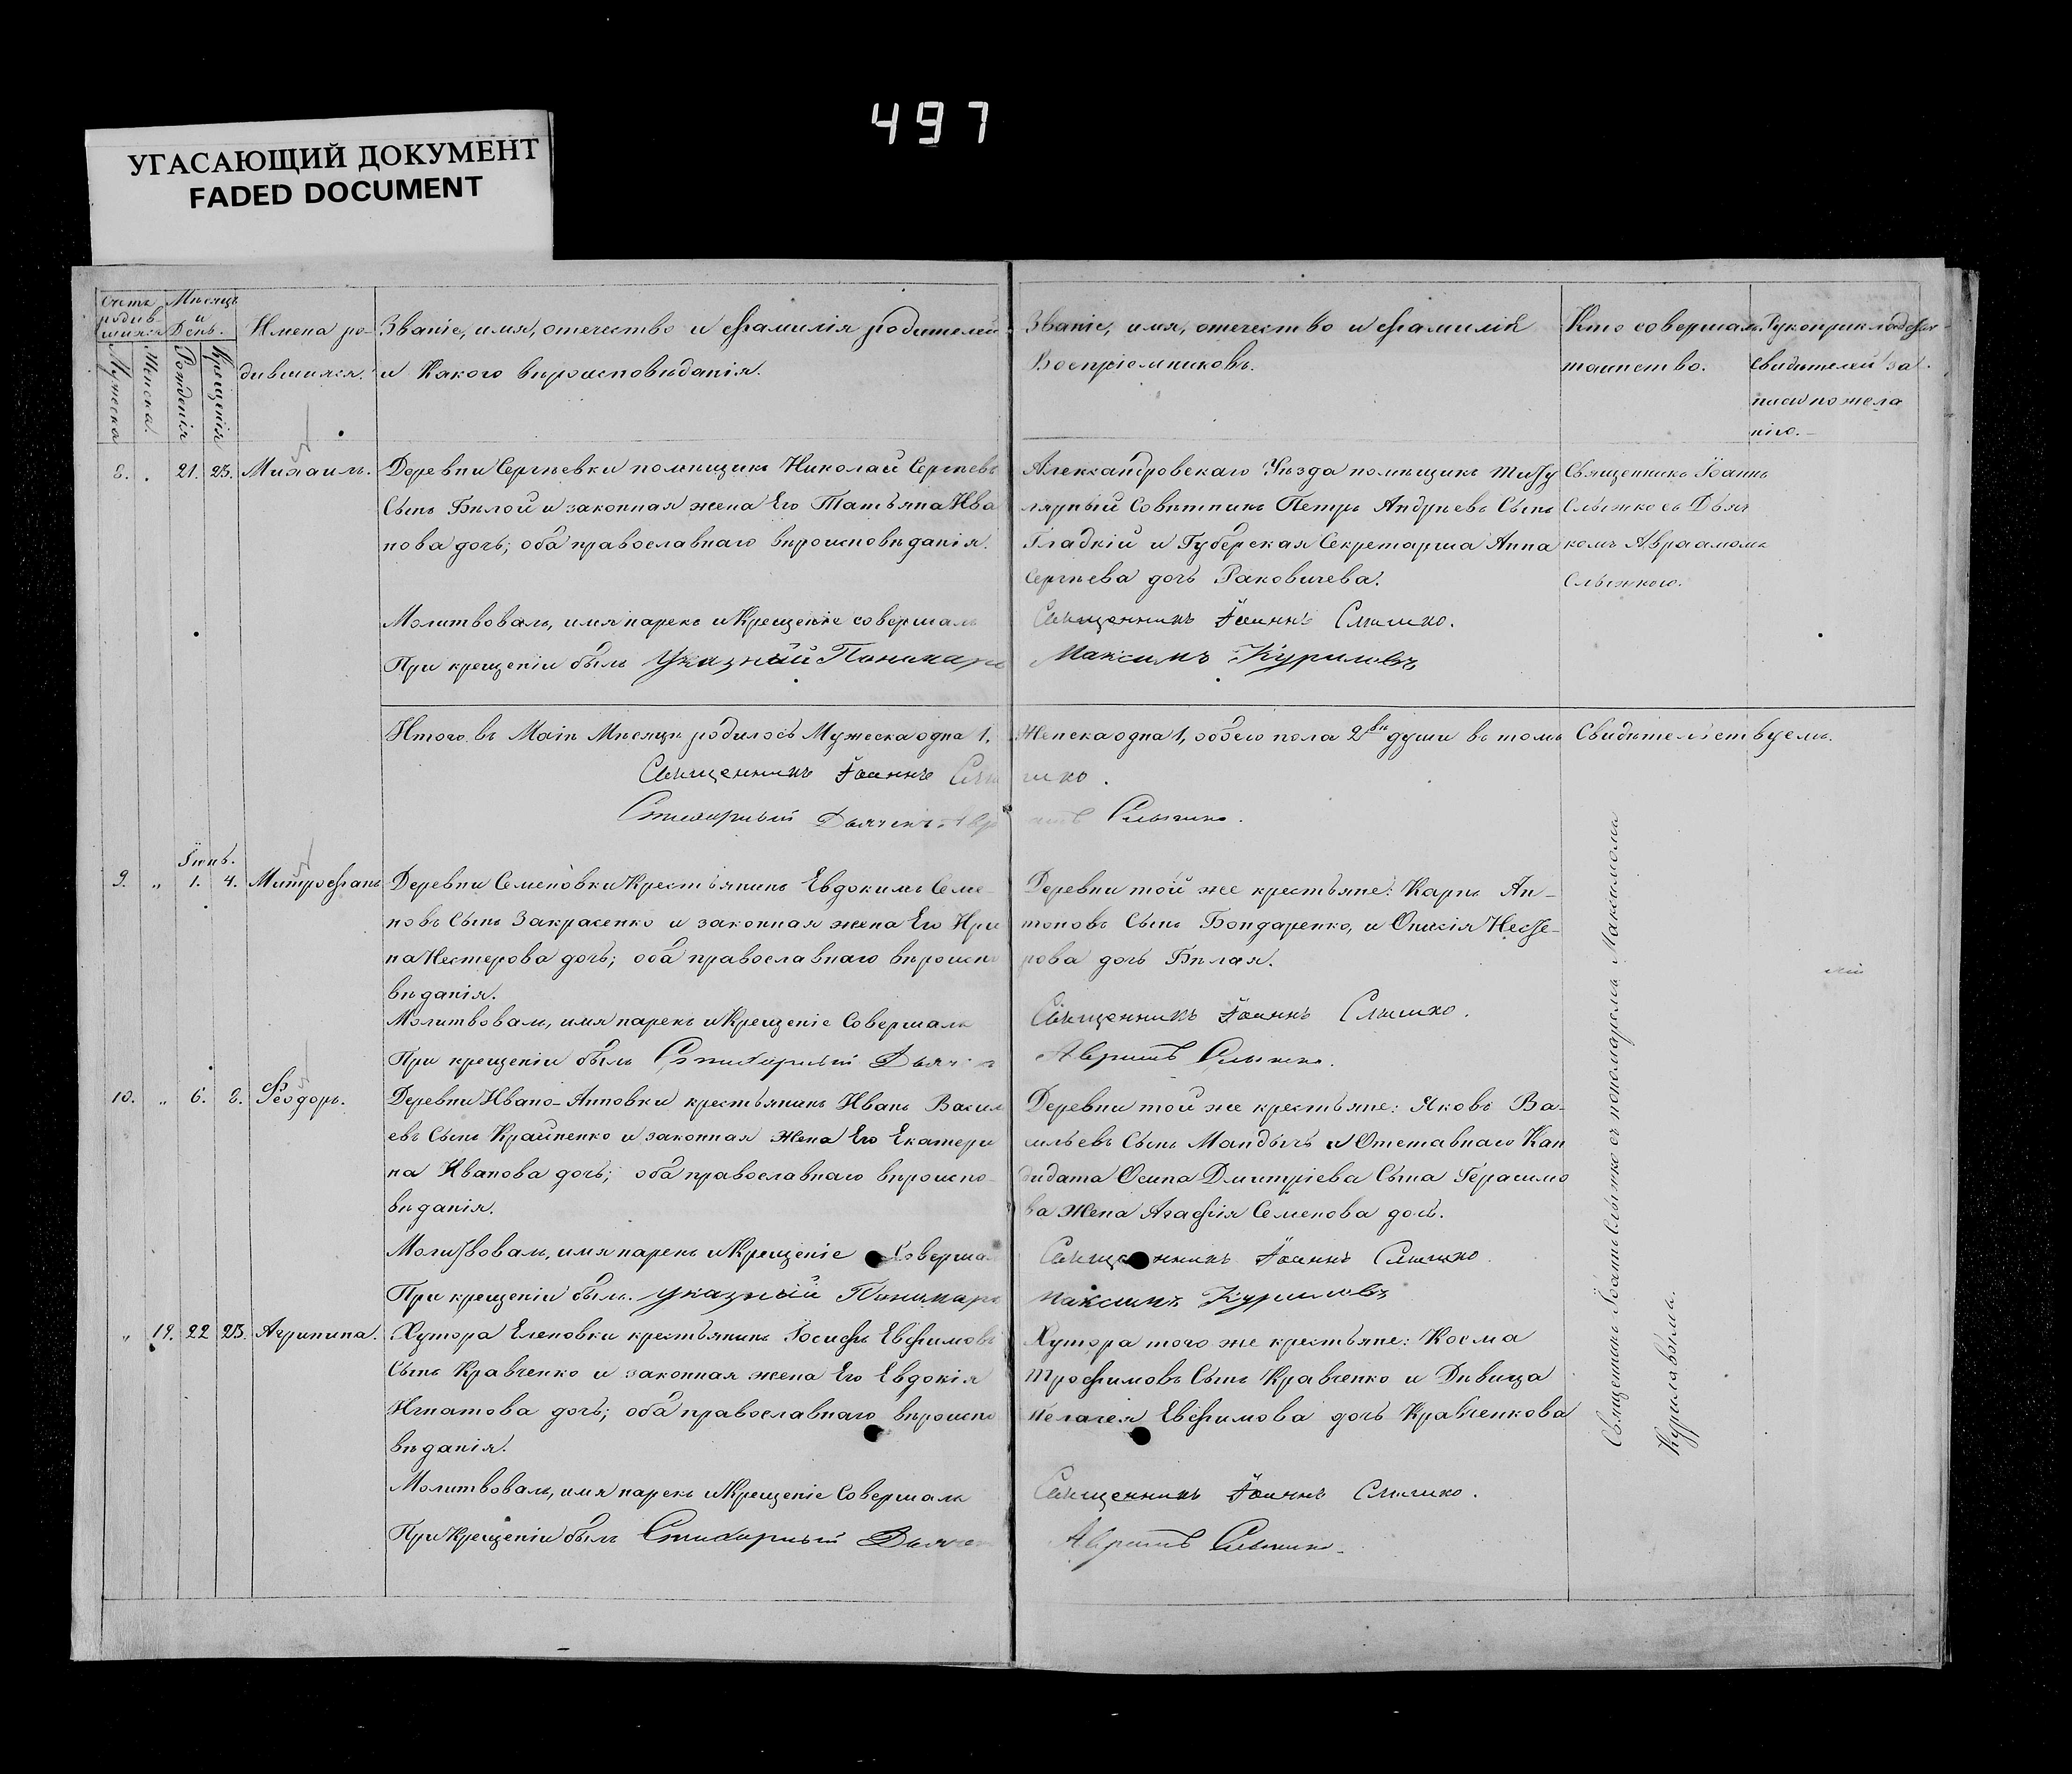 497
УГАСАЮЩИЙ ДОКУМЕНТ
FADED DOCUMENT
Счетъ родив-шихся
Мѣсяцъ и День.
Мужеска
Женска.
Рожденія
Крещенія
Имена ро-
дившихся.
Званіе, имя, отечество и фамилія родителей
и Какого вѣроисповѣданія.
Званіе, имя, отечество и фамилія
Воспріемниковъ.
Кто совершалъ
таинство.
Рукоприкладст
свидѣтелей за
писи по жела
нію.
8. . 21. 23. Михаилъ.
Деревни Сергѣевки помѣщикъ Николай Сергѣевъ
Сынъ Бѣлой и законная жена Его Татьяна Ива
нова дочь; оба православнаго вѣроисповѣданія.
Молитвовалъ, имя нарекъ и Крещеніе совершалъ
При крещеніи былъ Указный Пономарь
Александровскаго Уѣзда помѣщикъ титу
лярный Совѣтникъ Петръ Андреевъ Сынъ
Гладкій и Губерская Секретарша Анна
Сергѣева дочь Раковичева.
Священникъ Іоаннъ Слышко.
Максимъ Куриловъ
Священникъ Іоаннъ
Слышко съ Дьяч
комъ Авраамомъ
Слышкою.
Итого въ Маіѣ Мѣсяцѣ родилось Мужеска одна 1.
Женска одна 1, обоего пола 2вѣ души въ томъ Свидѣтельствуемъ.
Священникъ Іоаннъ Слышко.
Стихарный Дьячекъ Авраамъ Слышко.
Іюнь.
9. „ 1. 4. Митрофанъ
Деревни Семеновки Крестьянинъ Евдокимъ Семе-
новъ Сынъ Закрасенко и законная жена Его Ири
на Нестерова дочь; оба православнаго вѣроиспо
вѣданія.
Молитвовалъ, имя нарекъ и Крещеніе Совершалъ
При крещеніи былъ Стихарный Дьячекъ
Деревни той же крестьяне: Карпъ Ан-
тоновъ Сынъ Бондаренко, и Онисія Несте-
рова дочь Бѣлая.
Священникъ Іоаннъ Слышко.
Авраамъ Слышко.
10. „ 6. 8. Феодоръ.
Деревни Ивано-Анновки крестьянинъ Иванъ Васил
евъ Сынъ Крайненко и законная Жена Его Екатери
на Иванова дочь; оба православнаго вѣроиспо-
вѣданія.
Молитвовалъ, имя нарекъ и Крещеніе Соверша
При крещеніи былъ Указный Пономарь
Деревни той же крестьяне: Яковъ Ва-
сильевъ Сынъ Мандычъ и Отставнаго Кан
дидата Осипа Дмитріева Сына Герасимо
ва Жена Агафія Семенова дочь.
Священникъ Іоаннъ Слышко
Максимъ Куриловъ
„ 19. 22 23. Агрипина.
Хутора Еленовки крестьянинъ Іосифъ Евфимовъ
Сынъ Кравченко и законная жена Его Евдокія
Игнатова дочь; оба православнаго вѣроиспо
вѣданія.
Молитвовалъ, имя нарекъ и Крещеніе Совершалъ
При Крещеніи былъ Стихарный Дьячек
Хутора того же крестьяне: Косма
Трофимовъ Сынъ Кравченко и Дѣвица
Пелагея Евфимова дочь Кравченкова
Священникъ Іоаннъ Слышко.
Авраамъ Слышко.
Священникъ Іоаннъ Слышко съ пономаремъ Максимомъ
Куриловымъ.